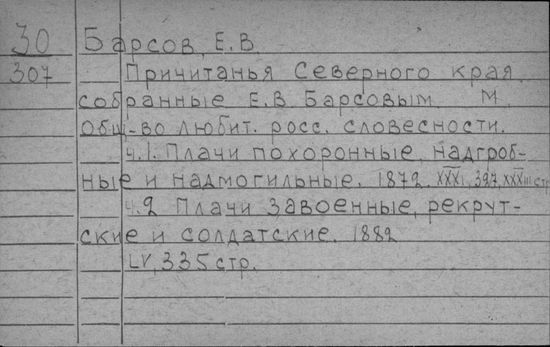 30 Барсов, Е.В.
307 Причитанья Северного края,
собранные Е.В Барсовым М.
Общ-во любит. росс. словесности.
ч.1. Плачи похоронные, надгроб-
ные и надмогильные. 1872. XXXI, 327, XXXIII стр
ч.2 Плачи завоенные, рекрут-
ские и солдатские. 1882
LV, 335 стр.